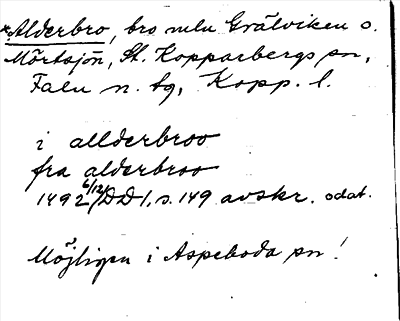 *Alderbro, bro mln Grälviken o.
Mörtsjön, St. Kopparbergs sn,
Falu n. tg, Kopp. l.
i allderbroo
fra alderbroo
1492 6/12/DD 1, s. 149 avskr. odat.
Möjligen i Aspeboda sn!